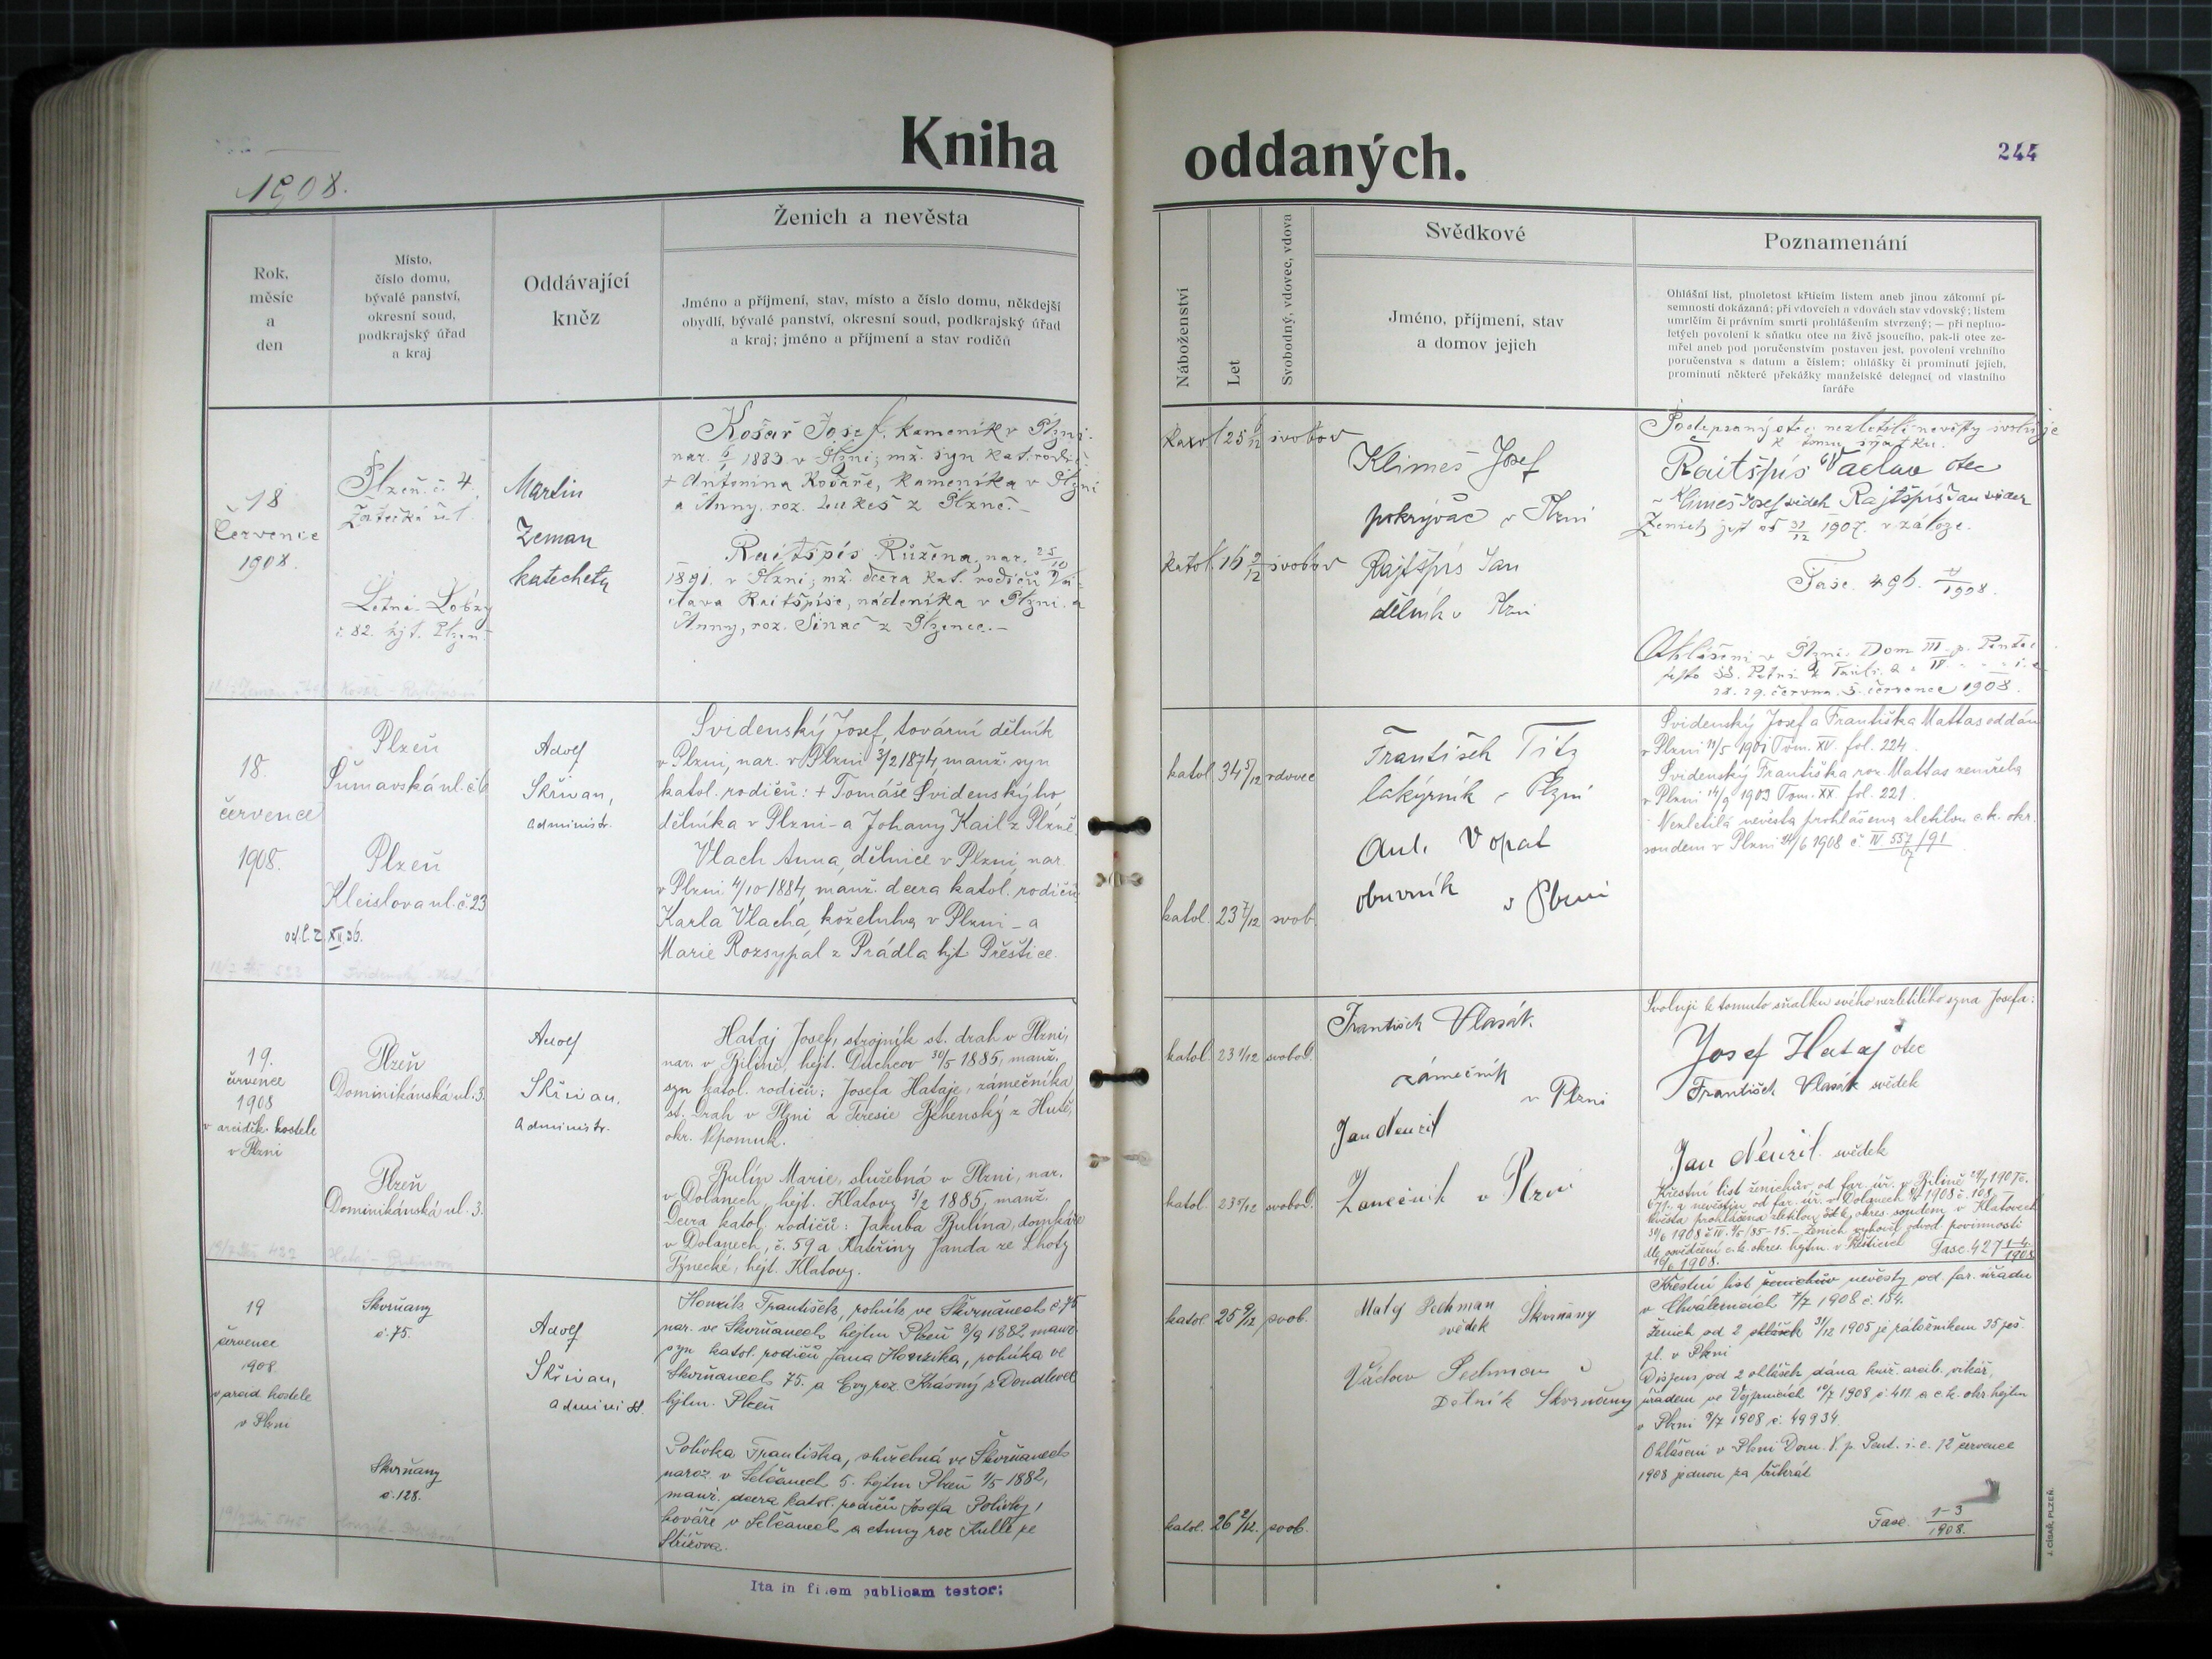 Kniha oddaných.
244
1908.
Rok,
měsíc
a
den
Místo,
číslo domu,
bývalé panství,
okresní soud,
podkrajský úřad
a kraj
Oddávající
kněz
Ženich a nevěsta
Jméno a příjmení, stav, místo a číslo domu, někdejší
obydlí, bývalé panství, okresní soud, podkrajský úřad
a kraj; jméno a příjmení a stav rodičů
Náboženství
Let
Svobodný, vdovec, vdova
Svědkové
Jméno, příjmení, stav
a domov jejich
Poznamenání
Ohlášní list, plnoletost křticím listem aneb jinou zákonní pí-
semností dokázaná; při vdovcích a vdovách stav vdovský; listem
umrlčím či právním smrti prohlášením stvrzený; — při neplno-
letých povolení k sňatku otce na živě jsoucího, pak-li otec ze-
mřel aneb pod poručenstvím postaven jest, povolení vrchního
poručenstva s datum a číslem; ohlášky či prominutí jejich,
prominutí některé překážky manželské delegací od vlastního
faráře
18
Července
1908.
Plzeň č. 4
Žatecká ul.
Letná-Lobzy
č. 82. hjt. Plzeň
Martin
Zeman
katecheta
Košař Josef, kameník v Plzni.
nar. 1883 v Plzni; mž. syn kat. rodičů
+ Antonína Košaře, kameníka v Plzni
a Anny, roz. Lukeš z Plzně.
Raitšpís Růžena, nar. 25/10
1891. v Plzni; mž. dcera kat. rodičů Vá-
clava Raitšpíse, nádeníka v Plzni a
Anny, roz. Sinač z Plzence.
katol 25 svobod
katol. 16 9/12 svobod
Klimeš Josef
pokrývač v Plzni
Rajtšpis Jan
dělník v Plzni
Podepsaný otec nezletilé nevěsty svoluje
k tomu sňatku.
Raitšpís Václav otec
Klimeš Josef svědek Rajtšpis Jan svědek
Ženich jest od 31/12 1907. v záloze.
Fasc. 496. 1908.
Ohlášeni v Plzni: Dom III. p. Pentec.
festo SS. Petri & Pauli. & " IV " " i. e.
28. 29. června, 5. července 1908.
18.
července
1908.
Plzeň
Šumavská ul. č. 6
Plzeň
Kleislova ul. č. 23
odl. 2. XII. 36.
Adolf
Skřivan,
administr.
Svidenský Josef, tovární dělník
v Plzni, nar. v Plzni 3/2 1874, manž. syn
katol. rodičů: + Tomáše Svidenského
dělníka v Plzni - a Johany Kail z Plzně.
Vlach Anna, dělnice v Plzni, nar.
v Plzni 4/10 1884, manž. dcera katol. rodičů
Karla Vlacha, koželuha v Plzni - a
Marie Rozsypal z Prádla hjt Přeštice.
katol. 34 5/12 vdovec
katol. 23 7/12 svob.
František Titz
lakýrník v Plzni
Ant. Vopat
obuvník v Plzni
Svidenský Josef a Františka Mattas oddán
v Plzni 11/5 1901 Tom. XV. fol. 224.
Svidenský Františka roz. Mattas zemřela
v Plzni 14/9 1903 Tom. XX fol. 221.
Nezletilá nevěsta prohlášena zletilou c.k. okr.
soudem v Plzni 24/6 1908 č. IV 557/91
19.
července
1908
v arciděk. kostele
v Plzni
Plzeň
Dominikánská ul. 3.
Plzeň
Dominikánská ul. 3.
Adolf
Skřivan,
administr.
Hataj Josef, strojník st. drah v Plzni,
nar. v Bílině, hejt. Duchcov 30/5 1885, manž.
syn katol. rodičů: Josefa Hataje, zámečníka
st. drah v Plzni a Teresie z Hutě,
okr. Nepomuk.
Bulín Marie, služebná v Plzni, nar.
v Dolanech, hejt. Klatovy 3/2 1885, manž.
Dcera katol. rodičů: Jakuba Bulína, domkáře
v Dolanech, č. 59 a Kateřiny Janda ze Lhoty
hejt. Klatovy.
katol. 23 1/12 svobod.
katol. 23 5/12 svobod.
František Vlasák.
zámečník
v Plzni
Jan Neuzil
Zamečník v Plzni
Svoluji k tomuto sňatku svého nezletilého syna Josefa:
Josef Hataj otec
František Vlasák svědek
Jan Neuzil. svědek
Křestní list ženichův od far. úř. v Bílině 1907 č.
677. a nevěstin od far. úř. v Dolanech 1908 č. 108.
Nevěsta prohlášena zletilou c.k. okres. soudem v Klatovech
30/6 1908 č. IV. 95/85-15. - Ženich vyhověl odvod. povinnosti
dle osvědčení c.k. okres. hejtm. v Přešticích
19/6 1908. Fasc. 427 1-4/1908
19
července
1908
v arcid kostele
v Plzni
Skvrňany
č. 75.
Skvrňany
č. 128.
Adolf
Skřivan,
administ.
Honzík František, rolník ve Skvrňanech č. 75
nar. ve Skvrňanech hejtm Plzeň 3/9 1882 manž
syn katol. rodičů Jana Honzíka, rolníka ve
Skvrňanech 75. a Evy roz. Krásný z Doudlevec
hejtm. Plzeň
Polívka Františka, služebná ve Skvrňanech
naroz. v Selčanech 5. hejtm Plzeň 1/5 1882,
manž. dcera katol. rodičů Josefa Polívky,
kováře v Selčanech a Anny roz
katol. 25 9/12 svob.
katol. 26 2/12. svob.
Matěj Pechman Skvrňany
svědek
Václav Pechman
Dělník Skvrňany
Křestní list ženichův nevěsty od far. úřadu
v Chválenicích 7/7 1908 č. 154.
Ženich od 2 ohlášek 31/12 1905 je záložníkem 35 pěš.
pl. v Plzni
Dispens od 2 ohlášek dána kníž. arcib. vikář.
úřadem ve Vejprnicích 10/7 1908 č. 411 a c.k. okr hejtm
v Plzni 9/7 1908 č. 49934.
Ohlášeni v Plzni Dom. V. p. Pent. i. e. 12 července
1908 jednou za třikrát
Fasc. 1-3/1908.
Ita in fidem publicam testor:
J. CÍSAŘ, PLZEŇ.